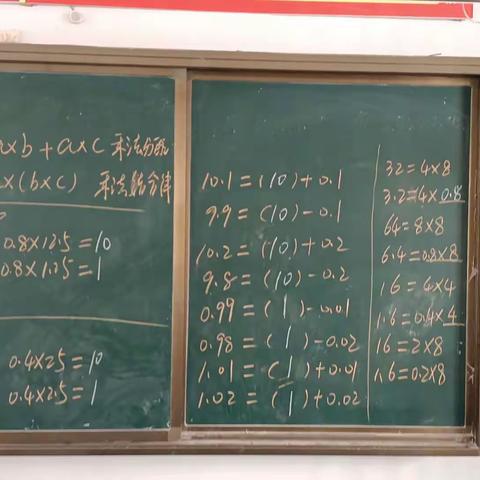 a×b+a×c 乘法分配
×(b×c) 乘法结合律
0.8×12.5=10
0.8×1.25=1
0.4×25=10
0.4×2.5=1
10.1=(10)+0.1
9.9=(10)-0.1
10.2=(10)+0.2
9.8=(10)-0.2
0.99=(1)-0.01
0.98=(1)-0.02
1.01=(1)+0.01
1.02=(1)+0.02
32=4×8
3.2=4×0.8
64=8×8
6.4=0.8×8
16=4×4
1.6=0.4×4
16=2×8
1.6=0.2×8